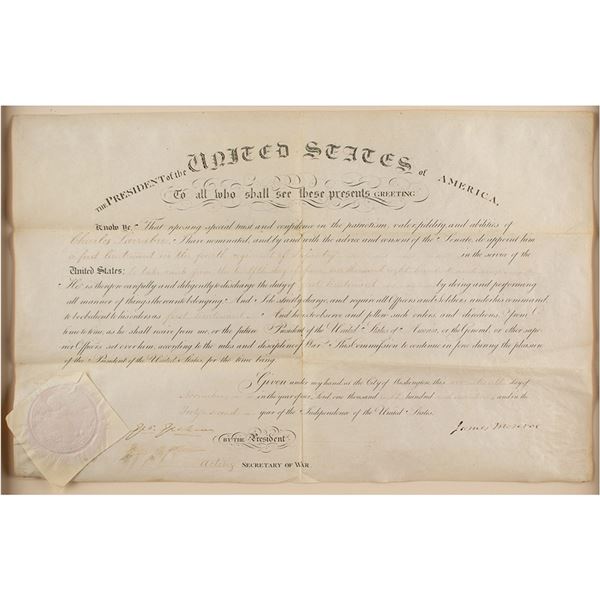 THE PRESIDENT of the UNITED STATES of AMERICA.
To all who shall see these presents GREETING
Know Ye. That reposing special trust and confidence in the patriotism, valor, fidelity, and abilities of
Charles Larrabee I have nominated, and by and with the advice and consent of the Senate, do appoint him
a first lieutenant in the regiment of Infantry in the service of the
United States: to take rank from the
He is therefore carefully and diligently to discharge the duty of first lieutenant by doing and performing
all manner of things thereunto belonging. And I do strictly charge, and require all Officers and Soldiers, under his command,
to be obedient to his orders as first lieutenant And he is to observe and follow such orders and directions, from
time to time, as he shall receive from me, or the future President of the United States of America, or the General, or other supe-
rior Officers set over him, according to the rules and discipline of War. This Commission to continue in force during the pleasure
of the President of the United States, for the time being.
Given under my hand, at the City of Washington, this day of
in the year of our Lord, one thousand eight hundred and and in the
year of the Independence of the United States.
James Monroe
BY THE President
Acting SECRETARY OF WAR